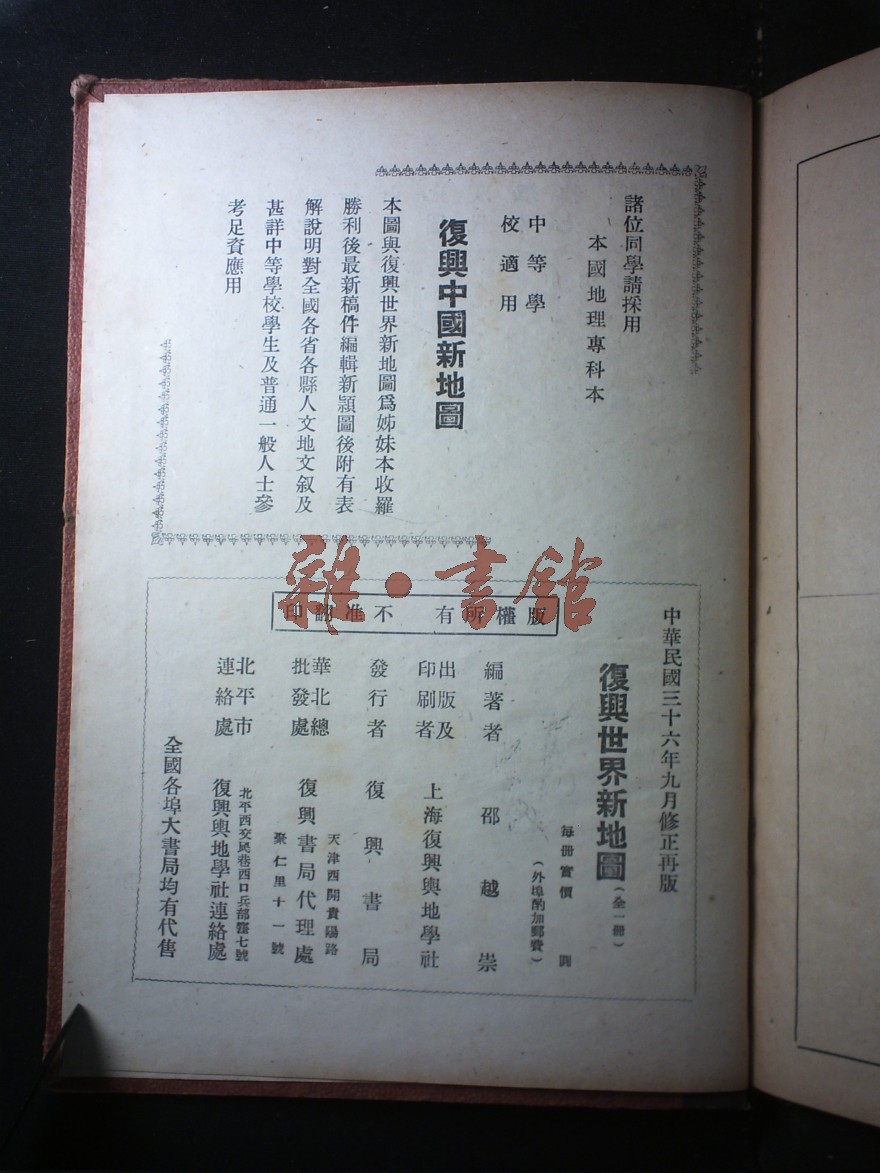 諸位同學請採用
本國地理專科本
中等學
校適用
復興中國新地圖
本圖與復興世界新地圖爲姊妹本收羅
勝利後最新稿件編輯新頴圖後附有表
解說明對全國各省各縣人文地文叙及
甚詳中等學校學生及普通一般人士參
考足資應用
雜·書館
版權所有 不准翻印
中華民國三十六年九月修正再版
復興世界新地圖(全一冊)
每冊實價
(外埠酌加郵費)
編著者 邵越崇
出版及
印刷者 上海復興輿地學社
發行者 復興書局
華北總
批發處 復興書局代理處
天津西開貴陽路
聚仁里十一號
北平市
連絡處 復興輿地學社連絡處
北平西交民巷西口兵部窪七號
全國各埠大書局均有代售